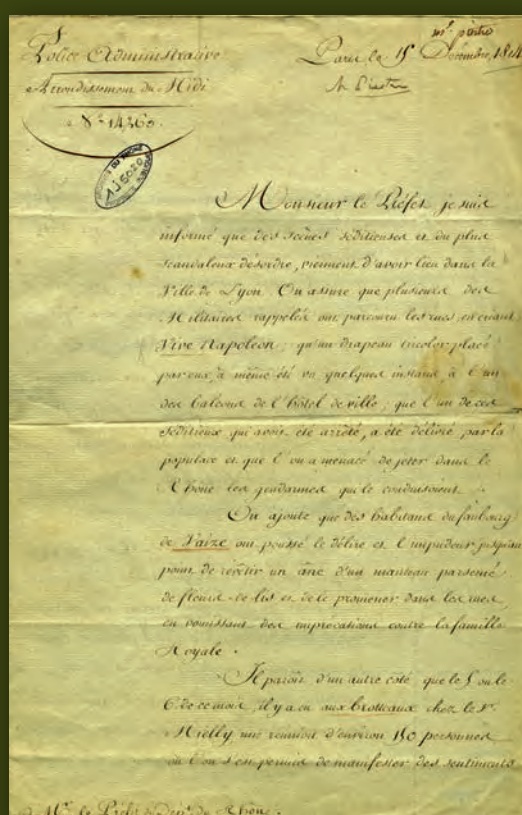 Police Administrative
Arrondissement du Midi
N° 14,360.
Paris le 15 Décembre, 1814
Monsieur le Préfet, je suis
informé que des scènes séditieuses et du plus
scandaleux désordre, viennent d'avoir lieu dans la
Ville de Lyon. On assure que plusieurs des
Militaires rappelés ont parcouru les rues en criant
Vive Napoléon; qu'un drapeau tricolor placé
par eux, a même été vu quelques instans, à l'un
des balcons de l'hôtel de ville; que l'un de ces
séditieux qui avoit été arrêté, a été délivré par la
populace et que l'on a menacé de jeter dans le
Rhône les gendarmes qui le conduisoient.
On ajoute que des habitans du faubourg
de Vaize ont poussé le délire et l'impudeur jusqu'au
point de revêtir un âne d'un manteau parsemé
de fleurs-de-lis et de le promener dans les rues,
en vomissant des imprécations contre la famille
Royale.
Il paroît d'un autre côté que le 5 ou le
6 de ce mois, il y a eu aux brotteaux chez le Sr.
Mielly, une réunion d'environ 150 personnes
où l'on s'est permis de manifester des sentiments
Mr. le Préfet du Dépt. du Rhône.